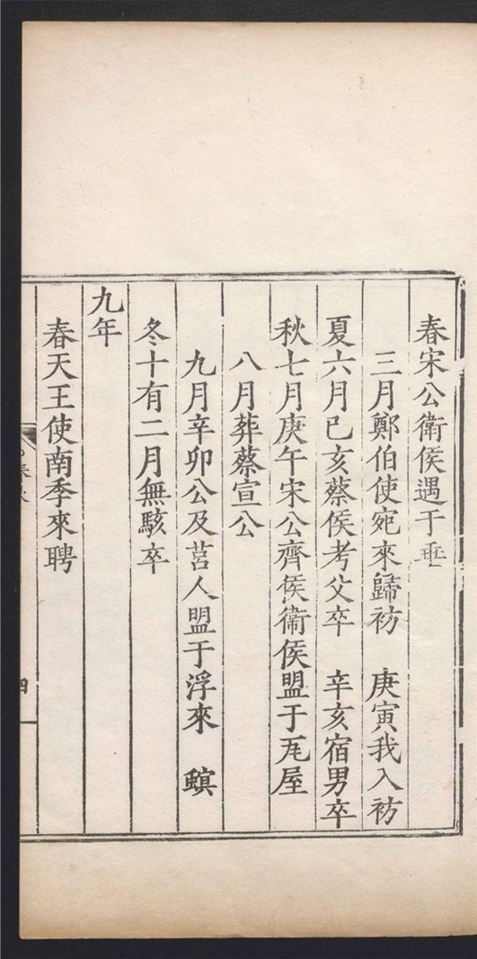 春宋公衛侯遇于垂
三月鄭伯使宛來歸祊　庚寅我入祊
夏六月己亥蔡侯考父卒　辛亥宿男卒
秋七月庚午宋公齊侯衛侯盟于瓦屋
八月葬蔡宣公
九月辛卯公及莒人盟于浮來　螟
冬十有二月無駭卒
九年
春天王使南季來聘
四